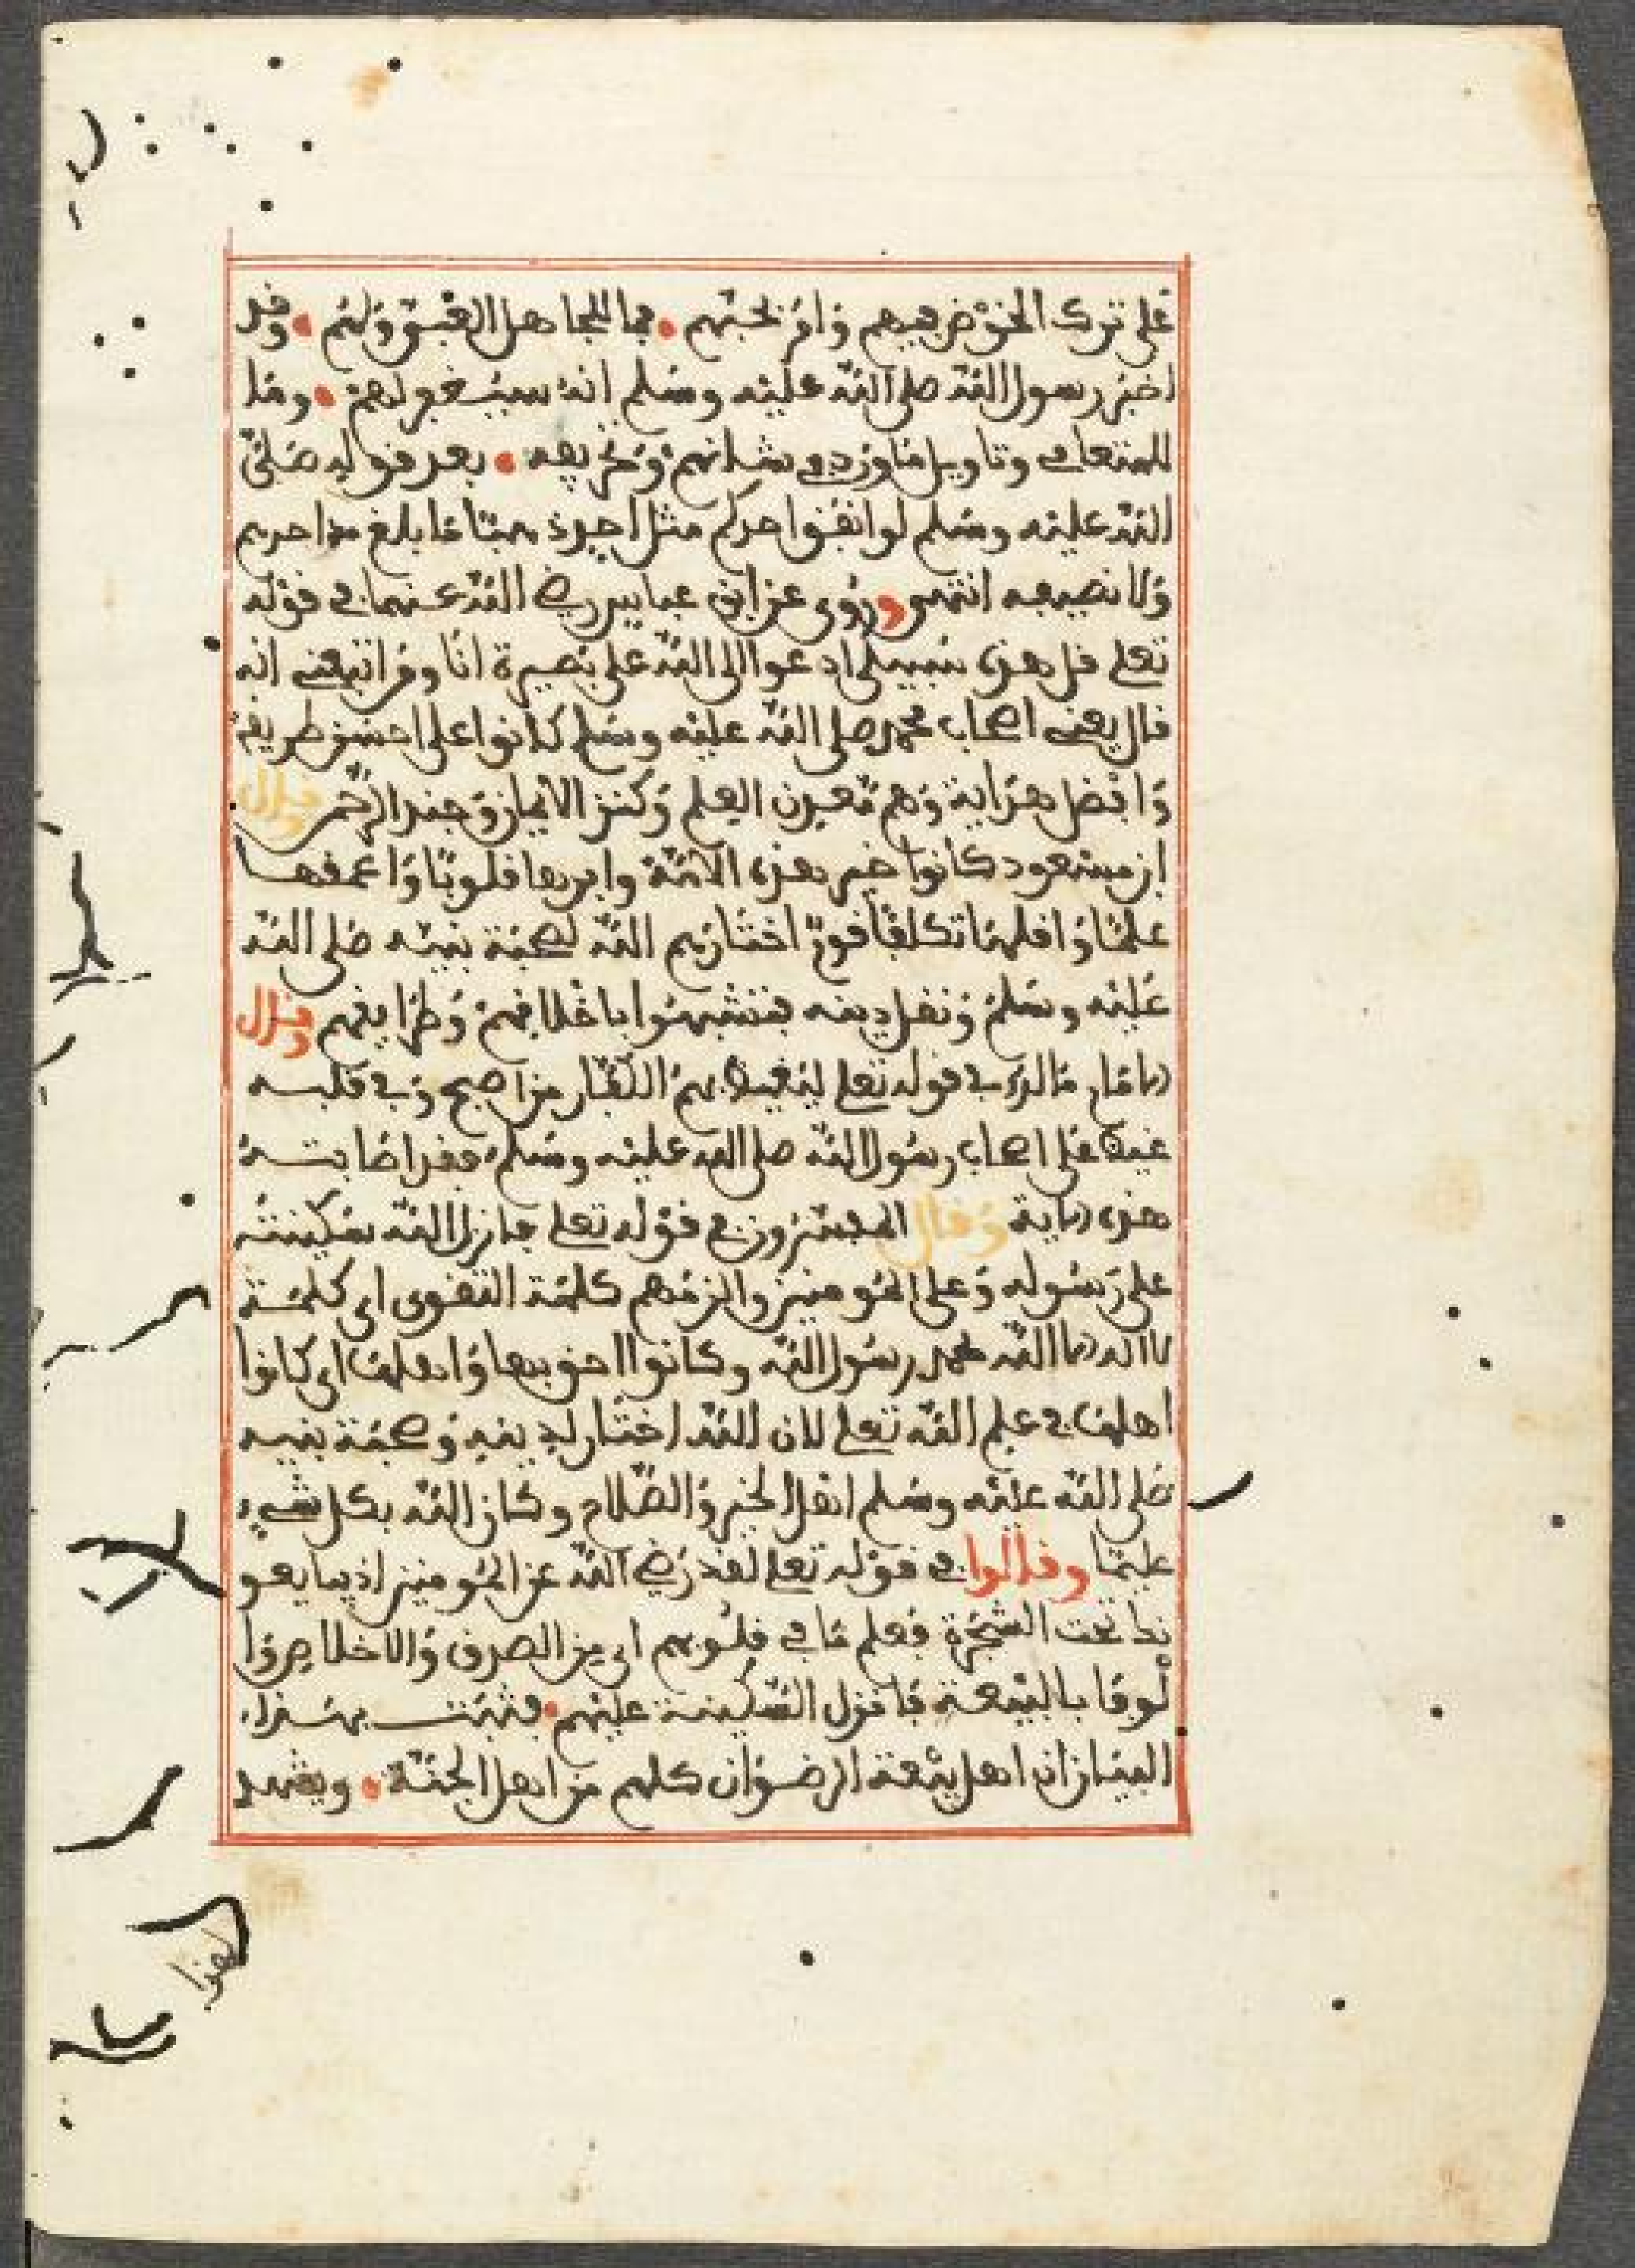 على ترك الخوض فيهم وامر بحبهم • فما للجاهل الغبي ولهم • وقد
اخبر رسول الله صلى الله عليه وسلم انه سيغفر لهم • وما
للمتعامي وتاويل ما ورد في شانهم وتحريفه • بعد قوله صلى
الله عليه وسلم لو انفق احدكم مثل احد ذهبا ما بلغ مد احدهم
ولا نصيفه انتهى وروي عن ابن عباس رضي الله عنهما في قوله
تعلى قل هذه سبيلي ادعوا الى الله على بصيرة انا ومن اتبعني انه
قال يعني اصحاب محمد صلى الله عليه وسلم كانوا على احسن طريقة
وافضل هداية وهم معدن العلم وكنز الايمان وجند الرحمن وقال
ابن مسعود كانوا خير هذه الامة وابرها قلوبا واعمقها
علما واقلها تكلفا قوم اختارهم الله لصحبة نبيه صلى الله
عليه وسلم ونقل دينه فتشبهوا باخلاقهم وطرايقهم وقال
الامام مالك في قوله تعلى ليغيظ بهم الكفار من اصبح وفي قلبه
غيظ على اصحاب رسول الله صلى الله عليه وسلم فقد اصابته
هذه الاية وقال المفسرون في قوله تعلى فانزل الله سكينته
على رسوله وعلى المومنين والزمهم كلمة التقوى اي كلمة
لا اله الا الله محمد رسول الله وكانوا احق بها واهلها اي كانوا
اهلها في علم الله تعلى لان الله اختار لدينه وصحبة نبيه
صلى الله عليه وسلم اهل الخير والصلاح وكان الله بكل شيء
عليما وقالوا في قوله تعلى لقد رضي الله عن المومنين اذ يبايعو
نك تحت الشجرة فعلم ما في قلوبهم اي من الصدق والاخلاص وا
لوفا بالبيعة فانزل السكينة عليهم • فثبت بهذا
البيان ان اهل بيعة الرضوان كلهم من اهل الجنة • ويشهد
لهذا